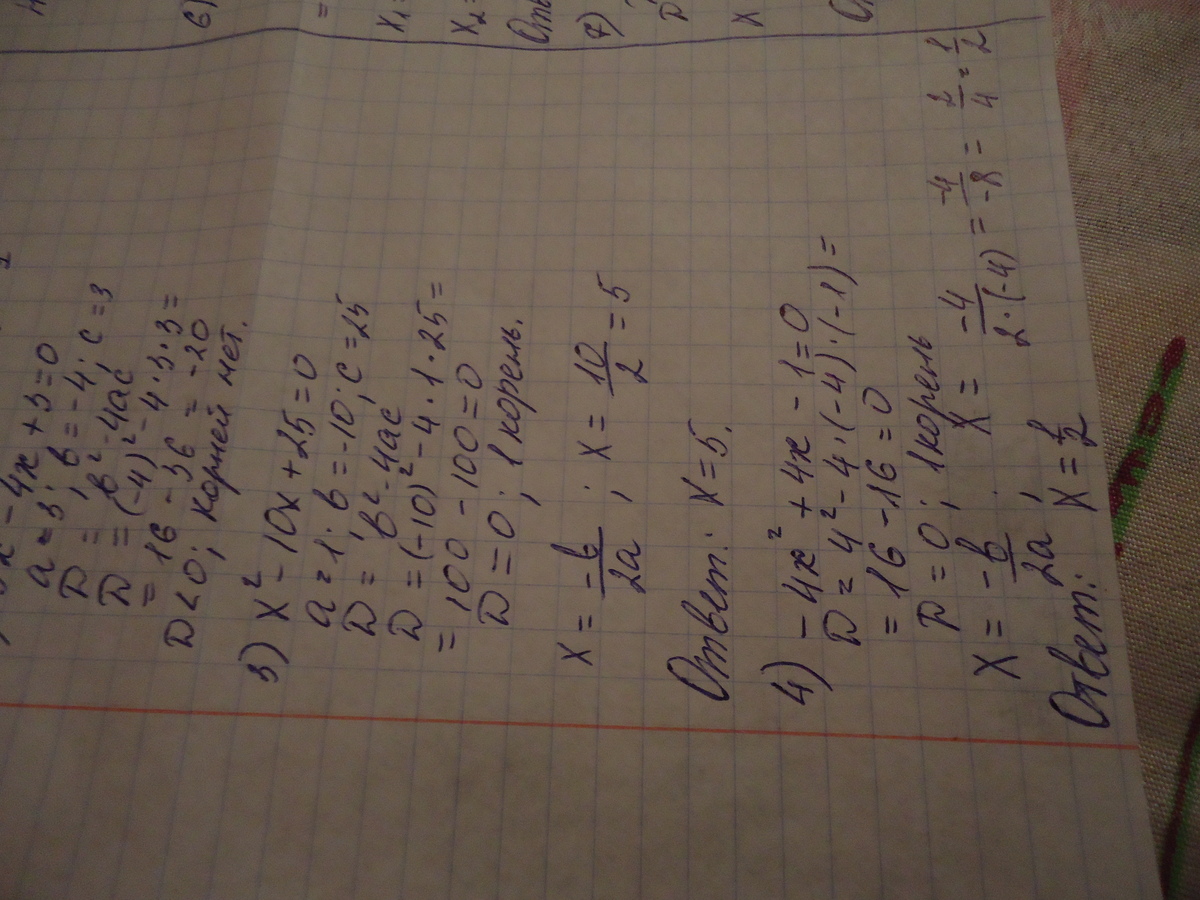 - 4x + 3 = 0
a = 3; в = -4; с = 3
D = в² - 4ac
D = (-4)² - 4 · 3 · 3 =
= 16 - 36 = -20
D < 0; корней нет.
3) x² - 10x + 25 = 0
a = 1; в = -10; с = 25
D = в² - 4ac
D = (-10)² - 4 · 1 · 25 =
= 100 - 100 = 0
D = 0; 1 корень.
x = -в/2a; x = 10/2 = 5
Ответ: x = 5.
4) -4x² + 4x - 1 = 0
D = 4² - 4 · (-4) · (-1) =
= 16 - 16 = 0
D = 0; 1 корень
x = -в/2a; x = -4/2·(-4) = -4/-8 = 2/4 = 1/2
Ответ: x = 1/2
6)
=
x₁=
x₂=
7)
D
x